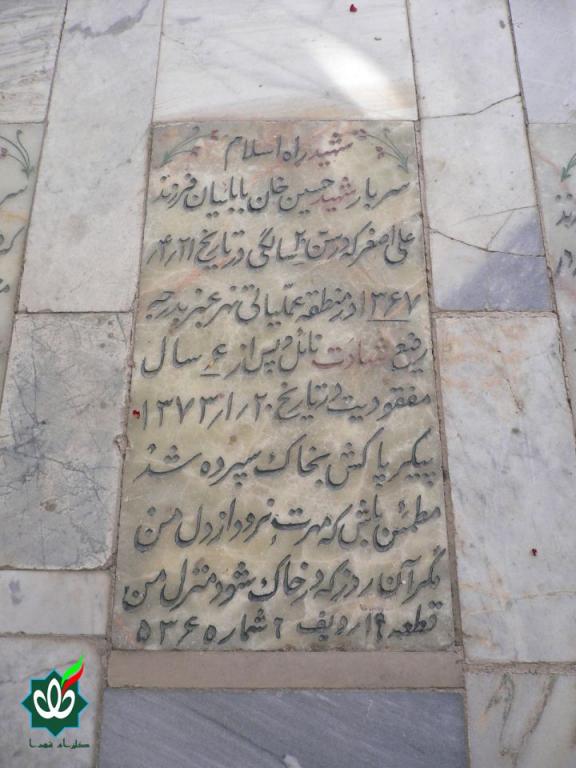 شهید راه اسلام
سرباز شهید حسین خان بابائیان فرزند
علی اصغر که در سن ۲۰ سالگی در تاریخ ۴٫۲۱٫
۱۳۶۷ در منطقه عملیاتی نهر عنبر بدرجه
رفیع شهادت نائل و پس از ۶ سال
مفقودیت در تاریخ ۱۳۷۳٫۱٫۲۰
پیکر پاکش بخاک سپرده شد
مطمئن باش که مهرت نرود از دل من
مگر آن روز که در خاک شود منزل من
قطعه ۱۹ ردیف ۶ شماره ۵۳۶
گلزار شهدا